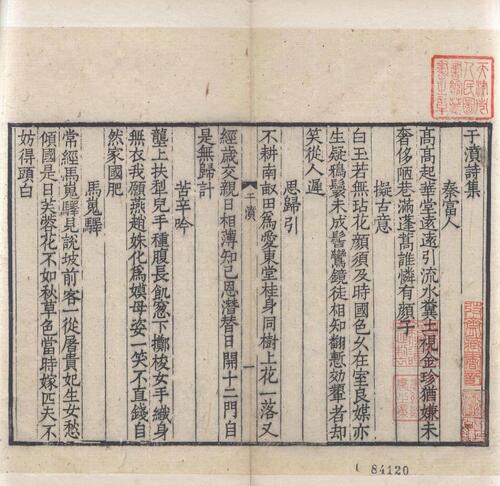 于濆詩集
秦富人
高高起華堂遠遠引流水糞土視金珍猶嫌未
奢侈陋巷滿蓬蒿誰憐有顏子
擬古意
白玉若無玷花顏須及時國色久在室良媒亦
生疑鴉鬟未成髻鸞鏡徒相知翻慙効顰者却
笑從人遲
思歸引
不耕南畝田為愛東堂桂身同樹上花一落又
經歲交親日相薄知己恩潛替日開十二門自
是無歸計
苦辛吟
壟上扶犁兒手種腹長飢窻下擲梭女手織身
無衣我願燕趙姝化為嫫母姿一笑不直錢自
然家國肥
馬嵬驛
常經馬嵬驛見說坡前客一從屠貴妃生女愁
傾國是日芙蓉花不如秋草色當時嫁匹夫不
妨得頭白
于濆
一
天津市
人民圖
書館藏
書之章
84120